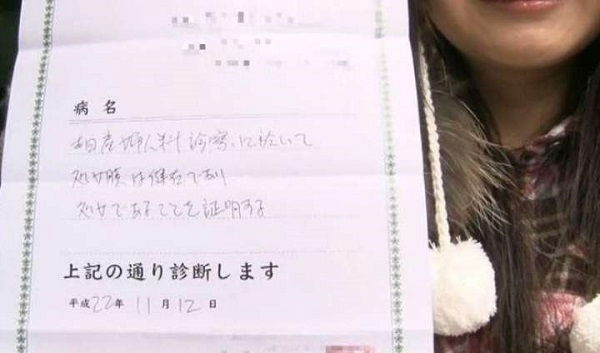 病名
本日産婦人科診察に於いて
処女膜は健在であり
処女であることを証明する
上記の通り診断します
平成22年11月12日